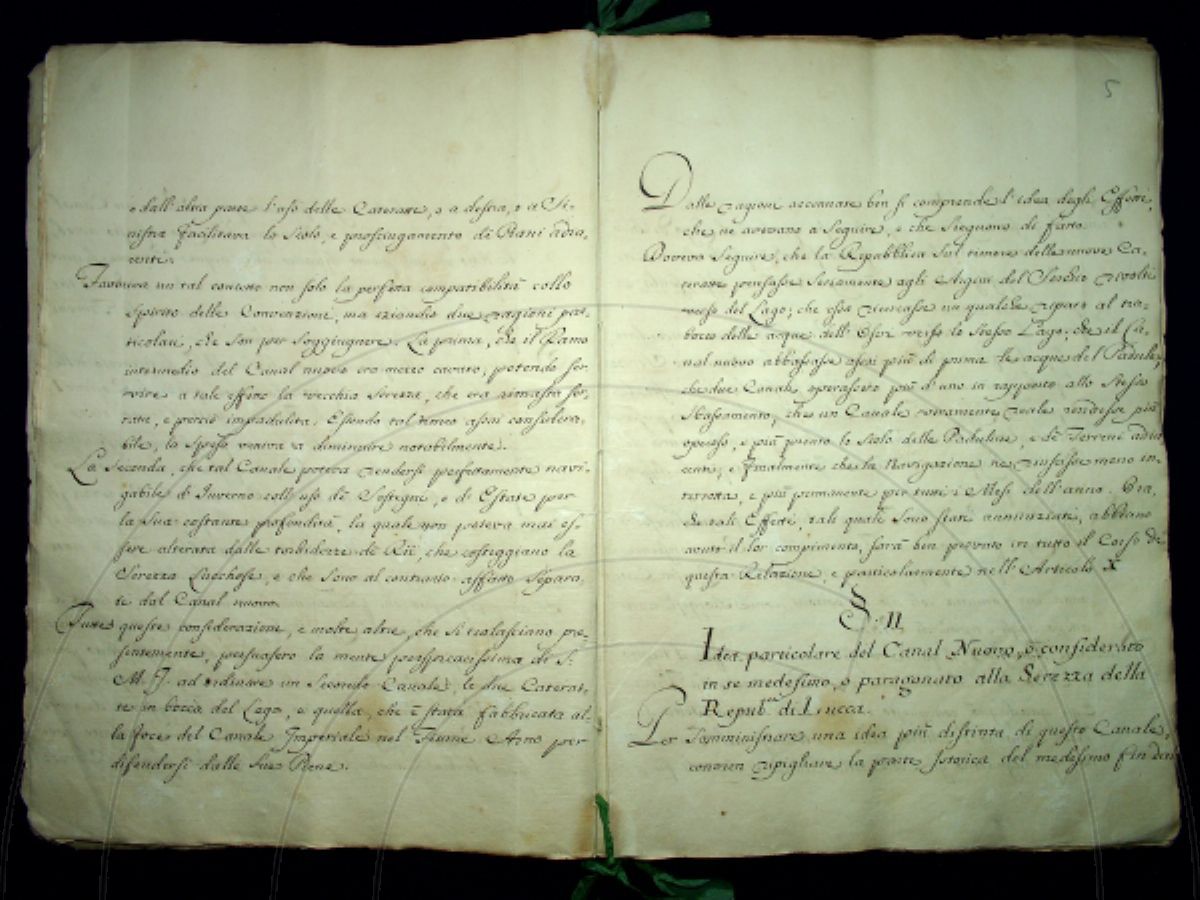 e dall'altra parte l'uso delle Cateratte, e a destra, e a Si-
nistra facilitava lo Scolo, e prosciugamento de' Piani adia,
centi.
Favoriva un tal concetto non solo la perfetta compatibilità collo
Spirito delle Convenzioni, ma eziandio due ragioni par-
ticolari, che son per soggiugnere. La prima, che il Ramo
intermedio del Canal nuovo era mezzo cavato, potendo ser-
vire a tale effetto la vecchia Serezza, che era rimasta ser-
rata, e perciò impadulita. Essendo tal tratto assai considera-
bile, la spesa veniva a diminuire notabilmente.
La Seconda, che tal Canale poteva rendersi perfettamente navi-
gabile d'Inverno coll'uso de' Sostegni, e di Estate per
la sua costante profondità, la quale non poteva mai es-
sere alterata dalle torbidezze de' Rii, che costeggiano la
Serezza Lucchese, e che sono al contrario affatto separa-
te dal Canal nuovo.
Tutte queste considerazioni, e molte altre, che si tralasciano pre-
sentemente, persuasero la mente perspicacissima di S.
M. I. ad ordinare un Secondo Canale, le due Caterat-
te in bocca del Lago, e quella, che è stata fabbricata al-
la foce del Canale Imperiale nel Fiume Arno per
difendersi dalle sue Piene.
5
Dalle ragioni accennate ben si comprende l'idea degli Effetti,
che ne avevano a Seguire, e che Sieguono di fatto.
Doveva Seguire, che la Repubblica Sul timore delle nuove Ca-
teratte pensasse Seriamente agli Argini del Serchio rivolti
verso del Lago; che essa cercasse un qualche riparo al tra-
bocco delle acque dell'Oseri verso lo stesso Lago; che il Ca-
nal nuovo abbassasse assai più di prima le acque del Padule,
che due Canali operassero più d'uno in rapporto allo stesso
Abbassamento; che un Canale rendesse più
operoso, e più pronto lo scolo delle Paduline, e de' Terreni adia-
centi; e finalmente che la Navigazione ne riuscisse meno in-
terrotta, e più permanente per tutti i Mesi dell'anno. Ora,
Se tali Effetti, tali quali sono stati annunziati, abbiano
avuto il lor compimento, sarà ben provato in tutto il Corso di
questa Relazione, e particolarmente nell'Articolo X
§. II
Idea particolare del Canal Nuovo, o considerato
in se medesimo, o paragonato alla Serezza della
Repub.ca di Lucca.
Per somministrare una idea più distinta di questo Canale,
convien ripigliare la parte Istorica del medesimo fin dal